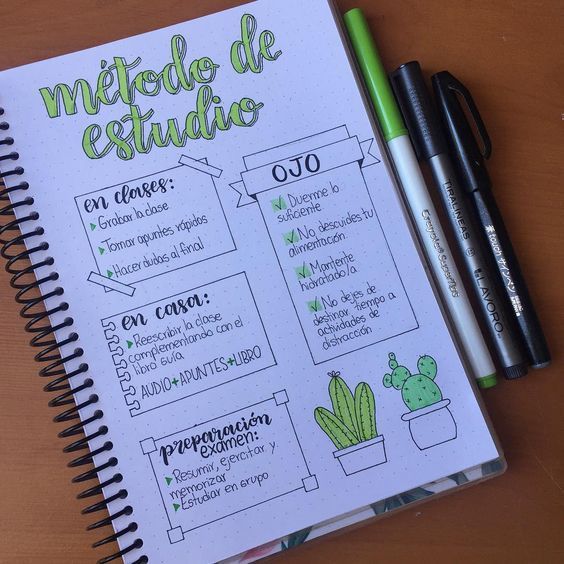 método de
estudio
en clases:
Grabar la clase
Tomar apuntes rápidos
Hacer dudas al final
en casa:
Reescribir la clase
complementando con el
libro guía
AUDIO+APUNTES+LIBRO
preparación
examen:
Resumir, ejercitar y
memorizar
Estudiar en grupo
OJO
Duerme lo
suficiente
No descuides tu
alimentación
Mantente
hidratado/a
No dejes de
destinar tiempo a
actividades de
distracción
TIRALINEAS
LAVORO
touch サインペン